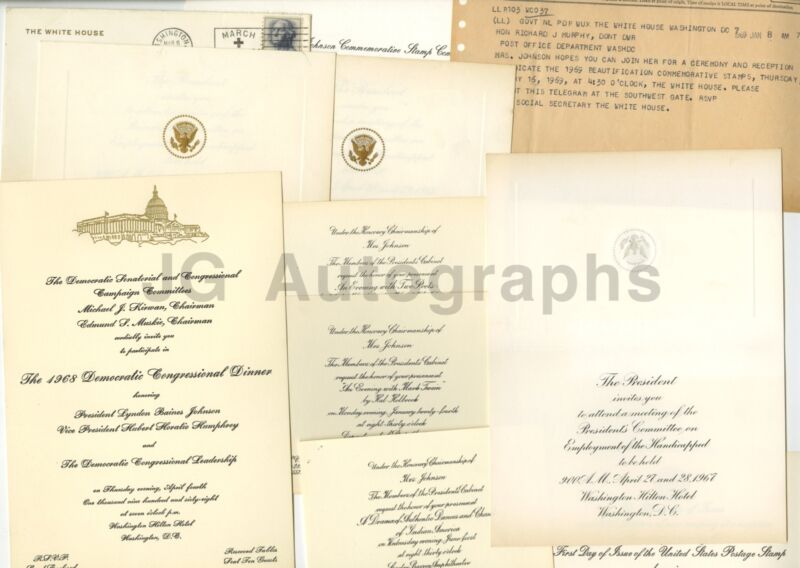 THE WHITE HOUSE
MARCH
Johnson Commemorative Stamp
LLA103 WC037
(LL) GOVT NL PDF WUX THE WHITE HOUSE WASHINGTON DC 7
1969 JAN 8 AM 7
HON RICHARD J MURPHY, DONT DWR
POST OFFICE DEPARTMENT WASHDC
MRS. JOHNSON HOPES YOU CAN JOIN HER FOR A CEREMONY AND RECEPTION
ICATE THE 1969 BEAUTIFICATION COMMEMORATIVE STAMPS, THURSDAY,
Y 16, 1969, AT 4:30 O'CLOCK, THE WHITE HOUSE. PLEASE
T THIS TELEGRAM AT THE SOUTHWEST GATE. RSVP
SOCIAL SECRETARY THE WHITE HOUSE.
The Democratic Senatorial and Congressional
Campaign Committees
Michael J. Kirwan, Chairman
Edmund S. Muskie, Chairman
cordially invite you
to participate in
The 1968 Democratic Congressional Dinner
honoring
President Lyndon Baines Johnson
Vice President Hubert Horatio Humphrey
and
The Democratic Congressional Leadership
on Thursday evening, April fourth
One thousand nine hundred and sixty-eight
at seven o'clock p.m.
Washington Hilton Hotel
Washington, D.C.
R.S.V.P.
Reserved Tables
Seat Ten Guests
Under the Honorary Chairmanship of
Mrs Johnson
The Members of the President's Cabinet
request the honor of your presence at
An Evening with Two Poets
Under the Honorary Chairmanship of
Mrs Johnson
The Members of the President's Cabinet
request the honor of your presence at
"An Evening with Mark Twain"
by Hal Holbrook
on Monday evening, January twenty-fourth
at eight-thirty o'clock
Under the Honorary Chairmanship of
Mrs Johnson
The Members of the President's Cabinet
request the honor of your presence at
A Drama of Authentic Dances and Chan
of Indian America
on Wednesday evening, June first
at eight-thirty o'clock
The President
invites you
to attend a meeting of the
President's Committee on
Employment of the Handicapped
to be held
9:00 A.M. April 27 and 28, 1967
Washington Hilton Hotel
Washington, D.C.
First Day of Issue of the United States Postage Stamp
JG Autographs